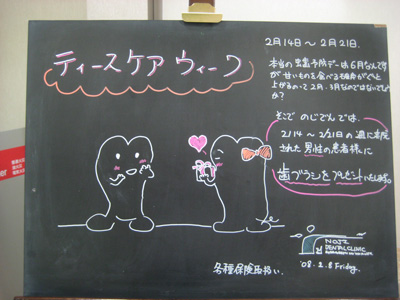 2月14日～2月21日.
ティースケアウィーク
本当の虫歯予防デーは6月なんですが
が甘いものを食べる確率がぐんと
上がるのって2月、3月なのではないでしょう
か?
そこで のじでんでは、
2/14～2/21日の週に来院
された男性の患者様に
歯ブラシをプレゼントいたします。
NOJI
DENTAL CLINIC
'08. 2. 8 Friday.
各種保険取扱い.